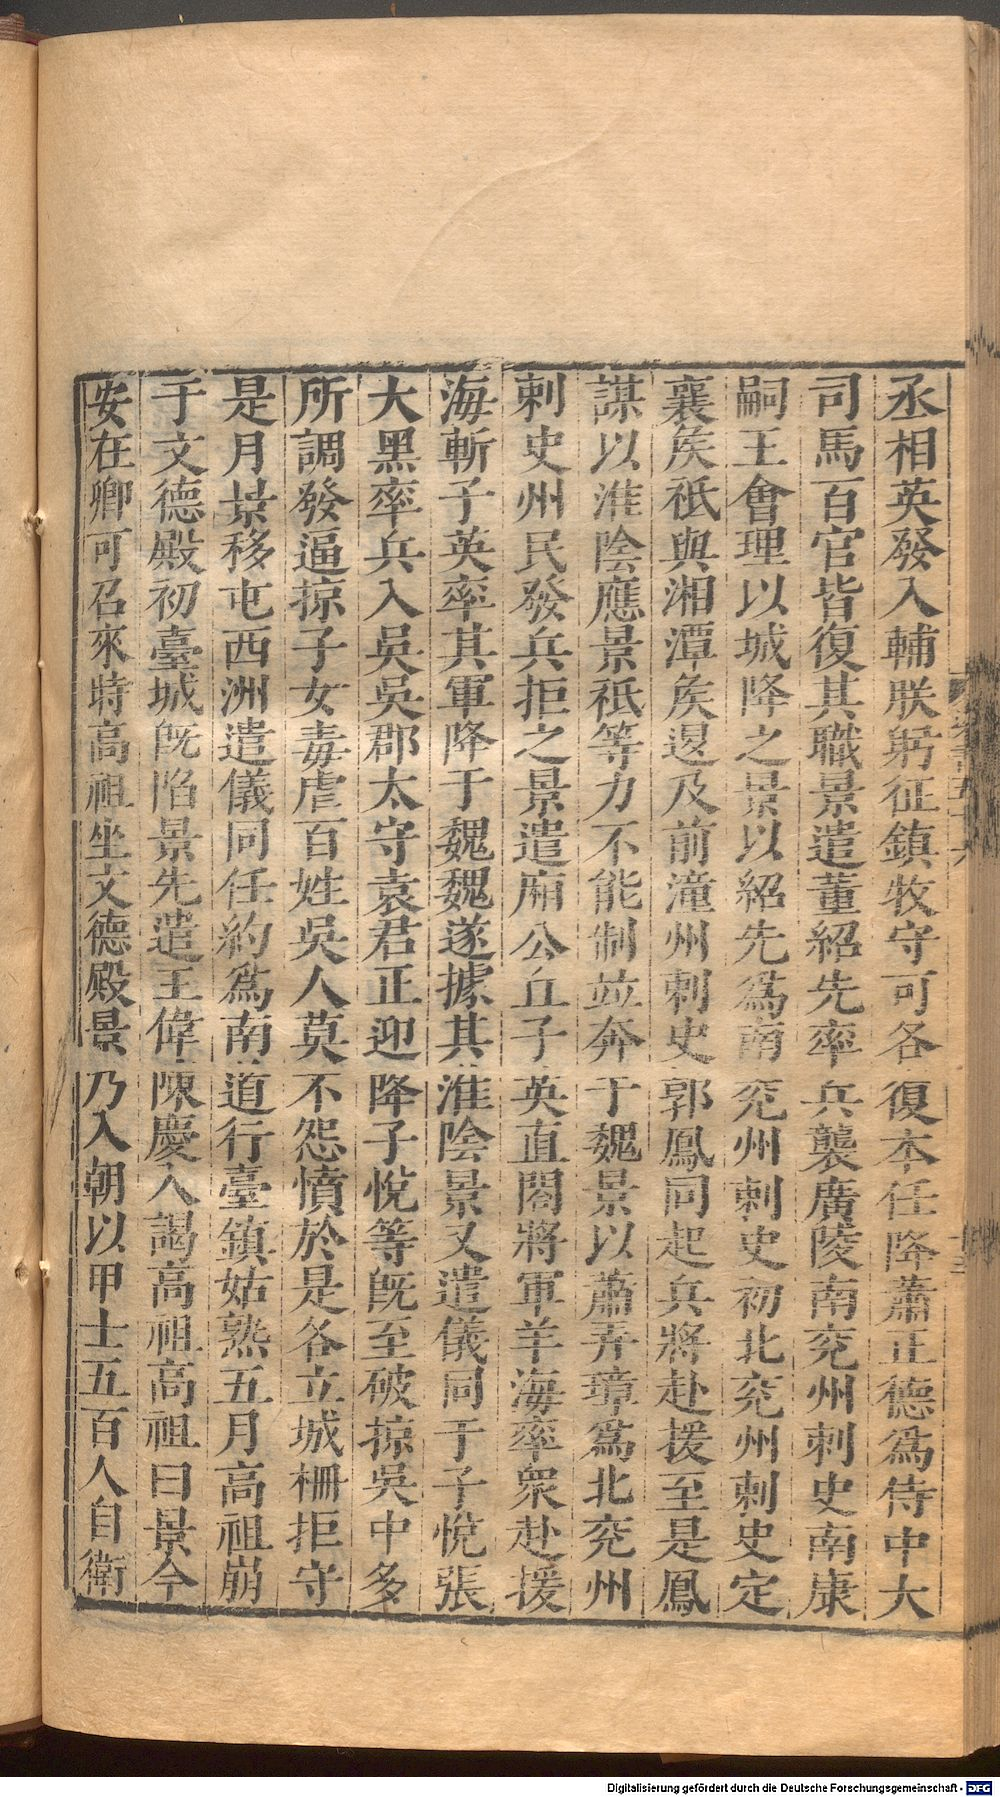 丞相英發入輔朕躬征鎮牧守可各復本任降蕭正德爲侍中大
司馬百官皆復其職景遣董紹先率兵襲廣陵南兖州刺史南康
嗣王會理以城降之景以紹先爲南兖州刺史初北兖州刺史定
襄矦祗與湘潭矦退及前潼州刺史郭鳳同起兵將赴援至是鳳
謀以淮陰應景祗等力不能制並奔于魏景以蕭弄璋爲北兖州
刺史州民發兵拒之景遣廂公丘子英直閤將軍羊海率衆赴援
海斬子英率其軍降于魏魏遂據其淮陰景又遣儀同于子悅張
大黑率兵入吳吳郡太守袁君正迎降子悅等既至破掠吳中多
所調發逼掠子女毒虐百姓吳人莫不怨憤於是各立城柵拒守
是月景移屯西洲遣儀同任約爲南道行臺鎮姑熟五月高祖崩
于文德殿初臺城既陷景先遣王偉陳慶入謁高祖高祖曰景今
安在卿可召來時高祖坐文德殿景乃入朝以甲士五百人自衛
Digitalisierung gefördert durch die Deutsche Forschungsgemeinschaft - DFG